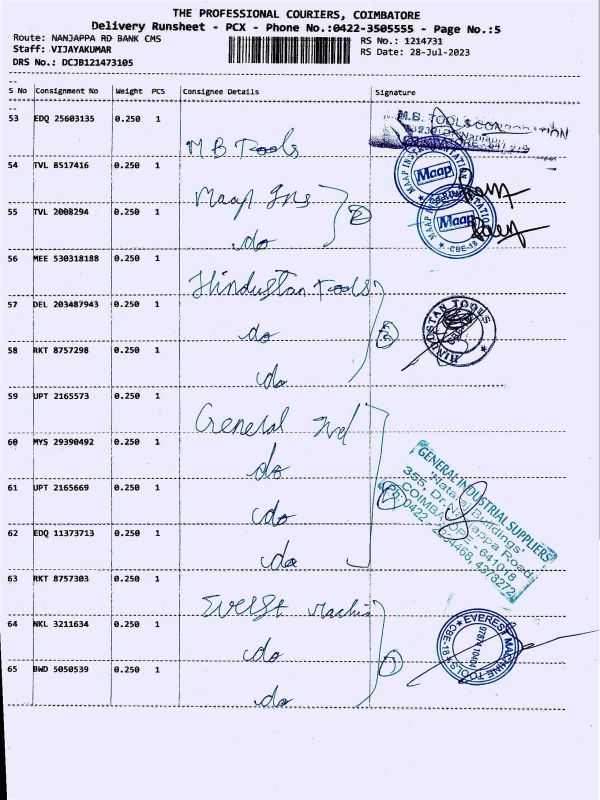 THE PROFESSIONAL COURIERS, COIMBATORE
Delivery Runsheet - PCX - Phone No.:0422-3505555 - Page No.:5
Route: NANJAPPA RD BANK CMS RS No.: 1214731
Staff: VIJAYAKUMAR RS Date: 28-Jul-2023
DRS No.: DCJB121473105
S No Consignment No Weight PCS Consignee Details Signature
53 EDQ 25603135 0.250 1
M.B. TOOLS
M.B Tools
54 TVL 8517416 0.250 1
Maap
Maap Ins
55 TVL 2008294 0.250 1
MAAP Maap CBE-18
do
56 MEE 530318188 0.250 1
Hindustan Tools
57 DEL 203487943 0.250 1
HINDUSTAN TOOLS
do
58 RKT 8757298 0.250 1
do
59 UPT 2165573 0.250 1
General Ind
60 MYS 29390492 0.250 1
GENERAL INDUSTRIAL SUPPLIERS
'Nataraj Buildings'
355, Dr. Nanjappa Road
COIMBATORE - 641018
do
61 UPT 2165669 0.250 1
do
62 EDQ 11373713 0.250 1
do
63 RKT 8757303 0.250 1
Everst Machin
64 NKL 3211634 0.250 1
EVEREST MACHINE TOOLS CBE-18
do
65 BWD 5050539 0.250 1
do